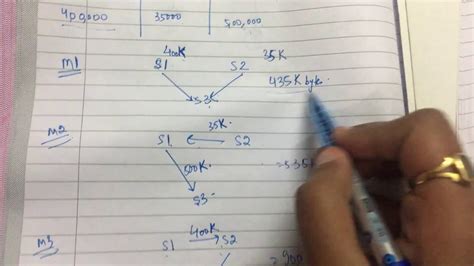 400,000 35000 500,000
M1 400K S1 S2 35K
435K byte.
S3
M2 35K. S1 S2
500K. =535K
S3
M3 S1 400K S2
=900